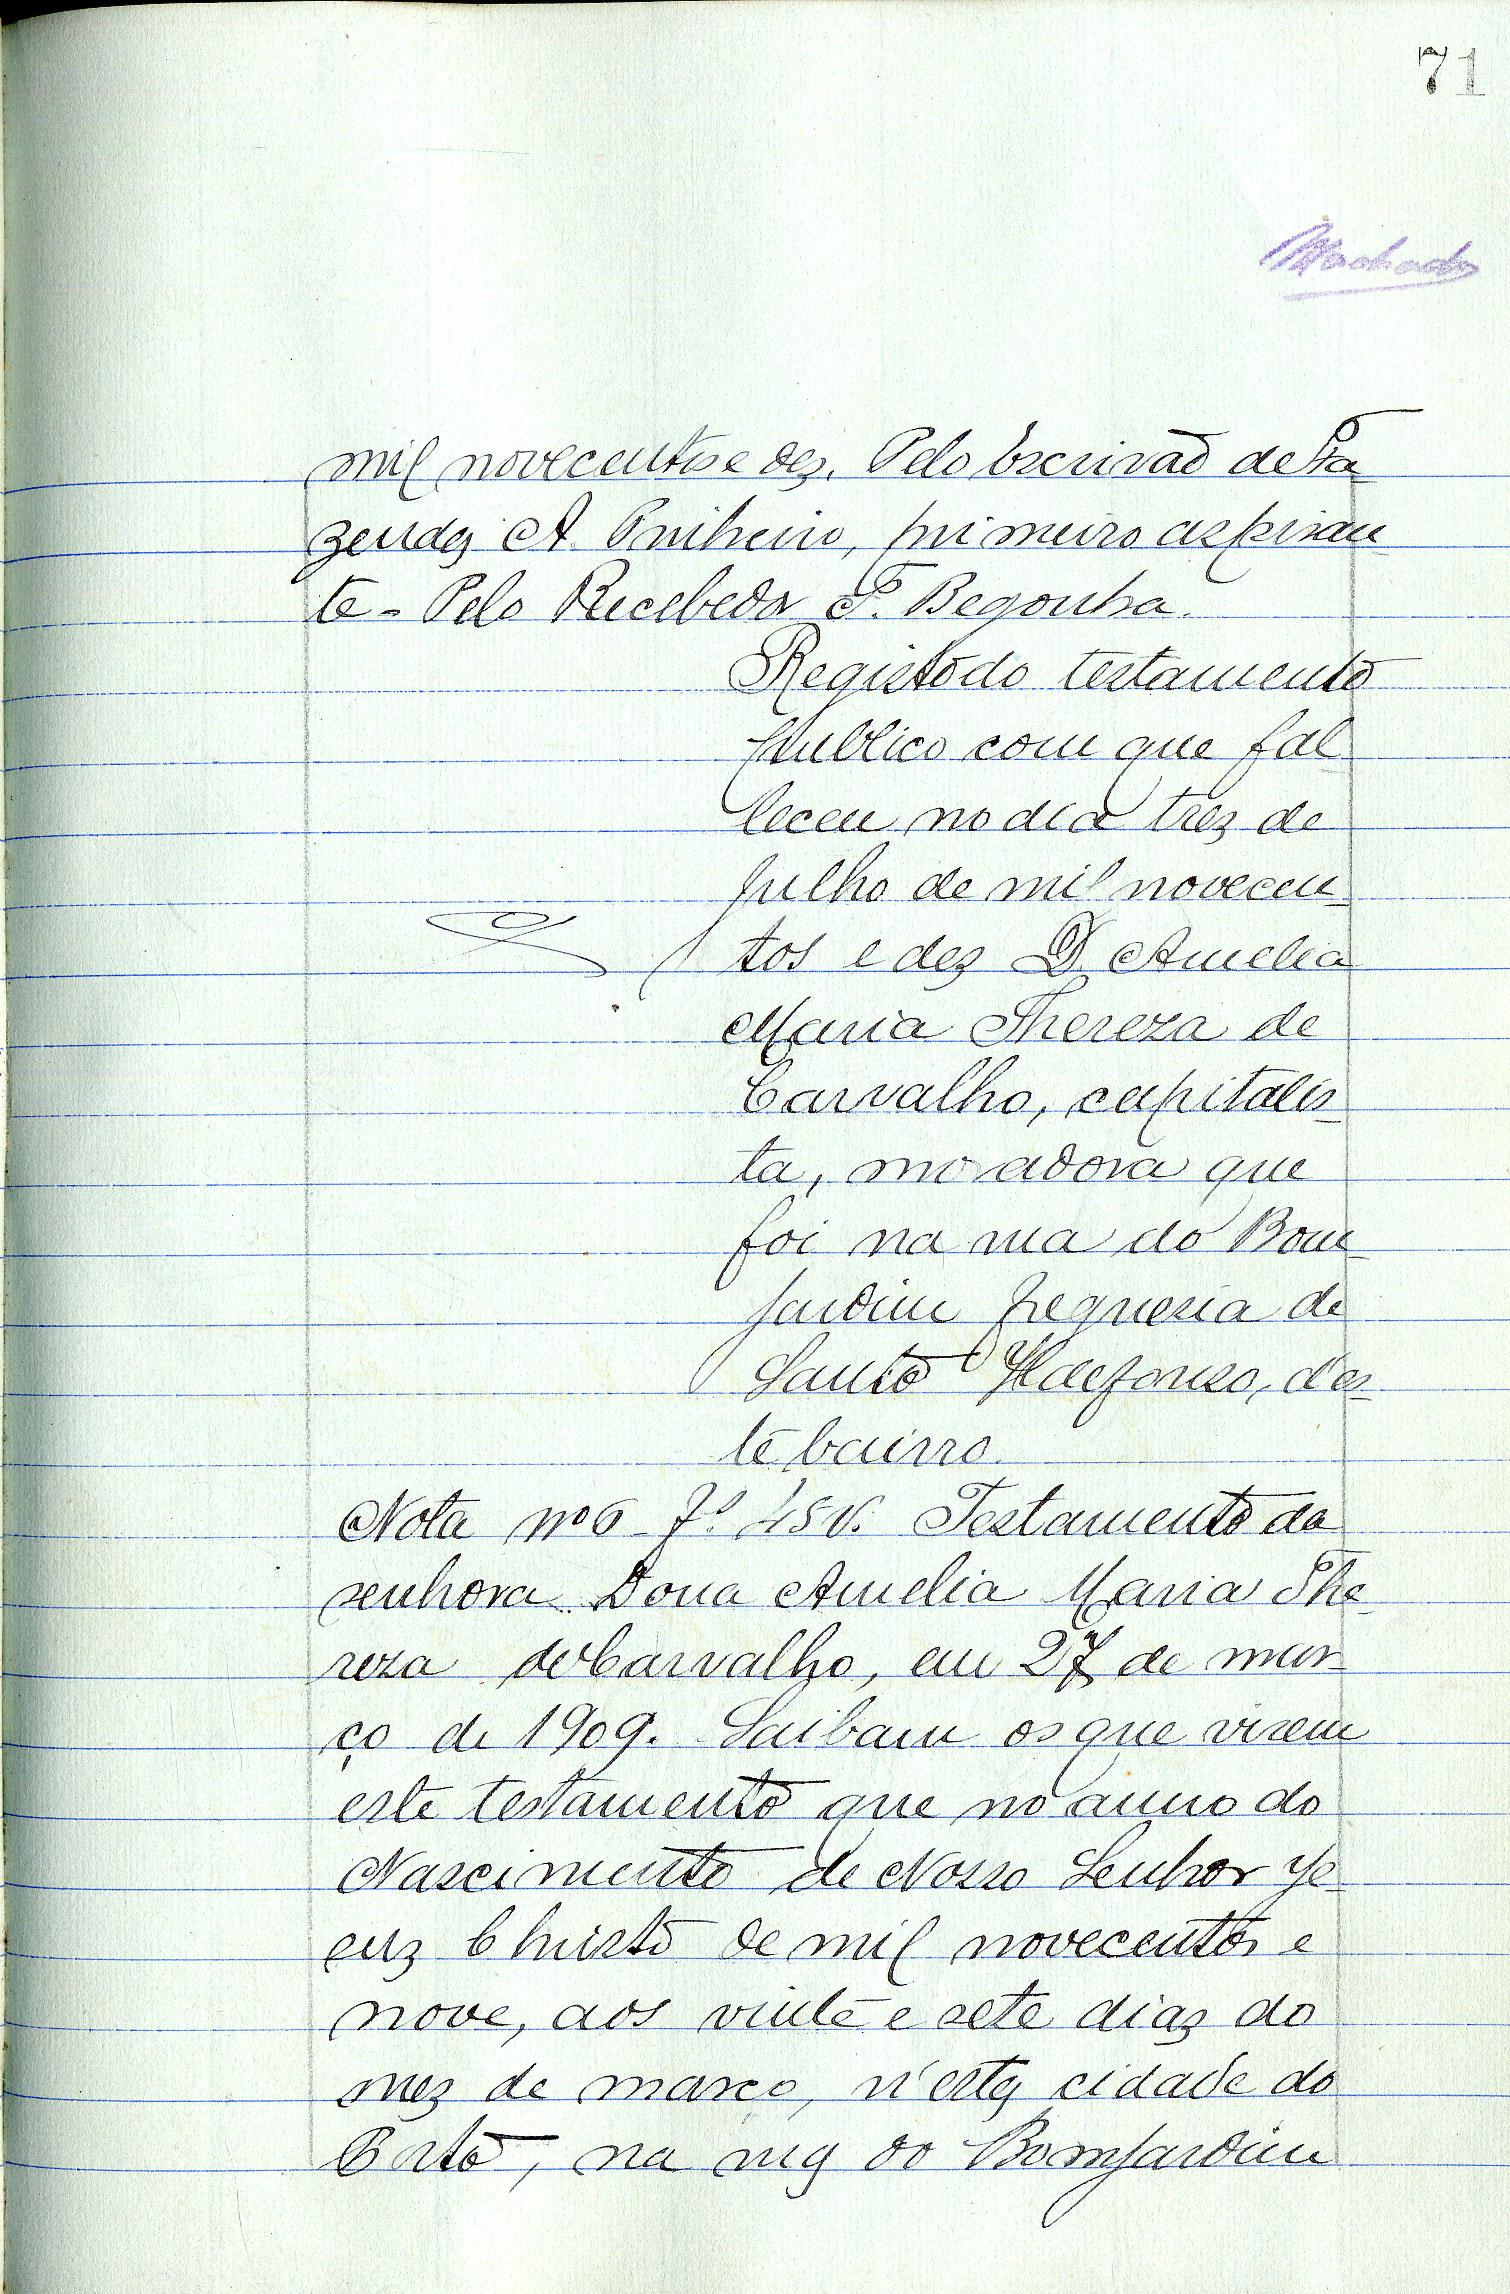 71
Machado
mil novecentos e dez. Pelo Escrivão de Fa
zenda, A. Pinheiro, primeiro aspiran
te - Pelo Recebedor F. Begonha.
Registo do testamento
publico com que fal
leceu no dia trez de
julho de mil novecen-
tos e dez D. Amelia
Maria Thereza de
Carvalho, capitalis-
ta, moradora que
foi na rua do Bom
jardim freguesia de
Santo Ildefonso, d'es-
te bairro.
Nota nº 6 - fs. 45 v. Testamento da
senhora Dona Amelia Maria The
reza de Carvalho, em 27 de mar-
ço de 1909. Saibam os que virem
este testamento que no anno do
Nascimento de Nosso Senhor Je-
sus Christo de mil novecentos e
nove, aos vinte e sete dias do
mez de março, n'esta cidade do
Porto, na rua do Bomjardim